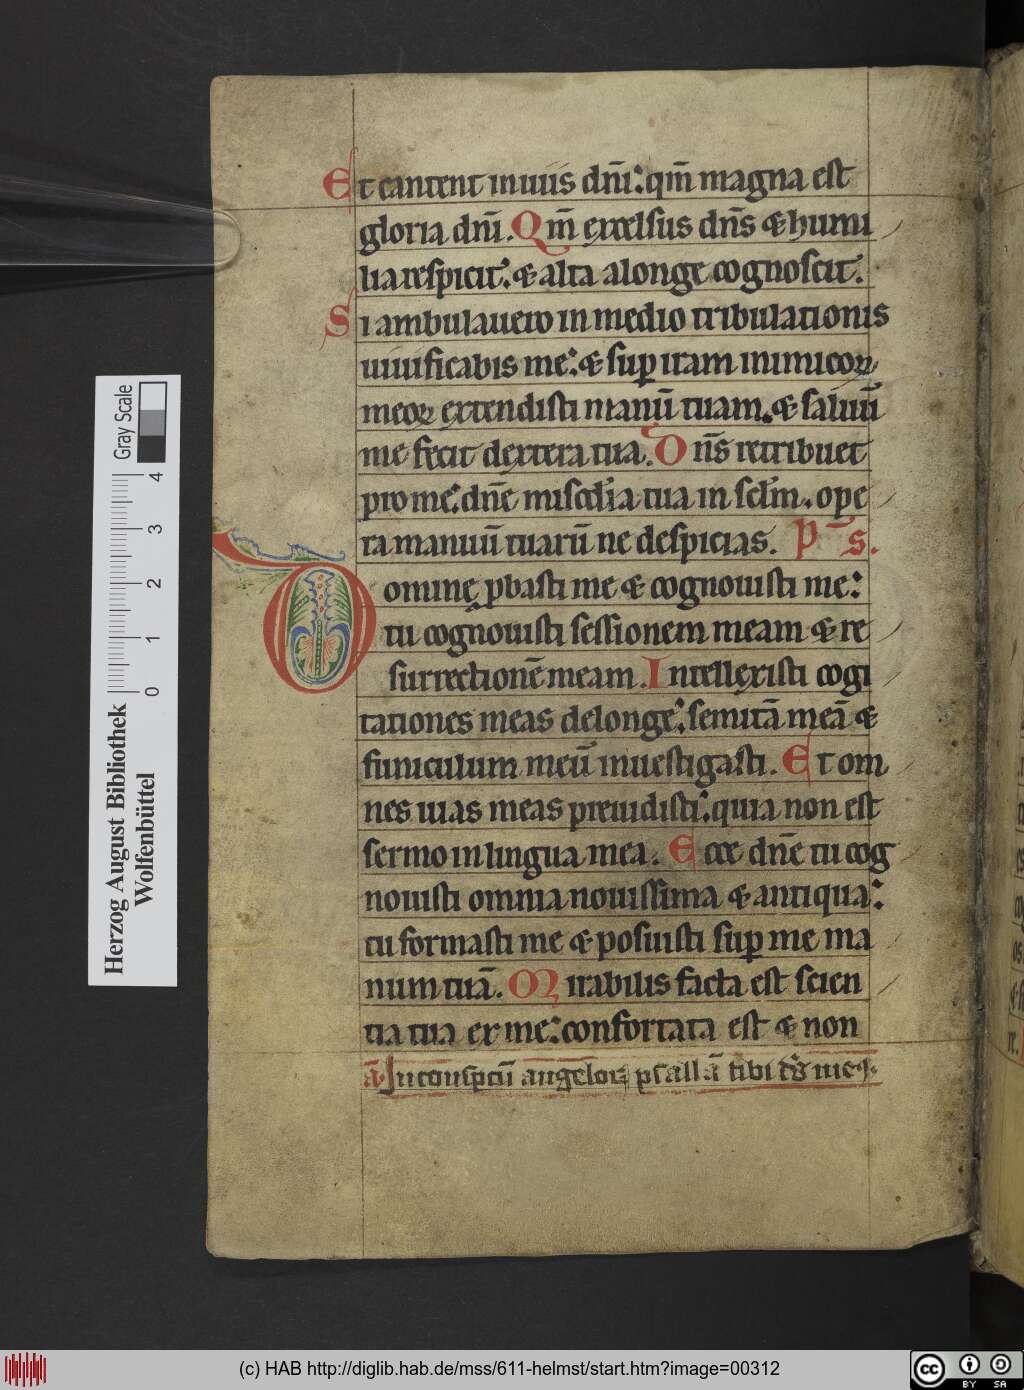 Et cantent in uiis dn̄i: qm̄ magna est
gloria dn̄i. Qm̄ excelsus dn̄s & humi
lia respicit: & alta a longe cognoscit.
Si ambulauero in medio tribulationis
uiuificabis me: & sup iram inimicoꝝ
meoꝝ extendisti manū tuam. & saluū
me fecit dextera tua. Dn̄s retribuet
pro me: dn̄e miscd̄ia tua in scl̄m. ope
ra manuū tuarū ne despicias. P̄s.
Domine ꝓbasti me & cognouisti me:
tu cognouisti sessionem meam & re
surrectionē meam. Intellexisti cogi
tationes meas de longe: semitā meā &
funiculum meū inuestigasti. Et om
nes uias meas preuidisti: quia non est
sermo in lingua mea. Ecce dn̄e tu cog
nouisti omnia nouissima & antiqua:
tu formasti me & posuisti sup me ma
num tuā. Mirabilis facta est scien
tia tua ex me: confortata est & non
ā. In conspcū angeloꝝ psallā tibi ds̄ me9.
Herzog August Bibliothek
Wolfenbüttel
Gray Scale
0 1 2 3 4
(c) HAB http://diglib.hab.de/mss/611-helmst/start.htm?image=00312
cc BY SA